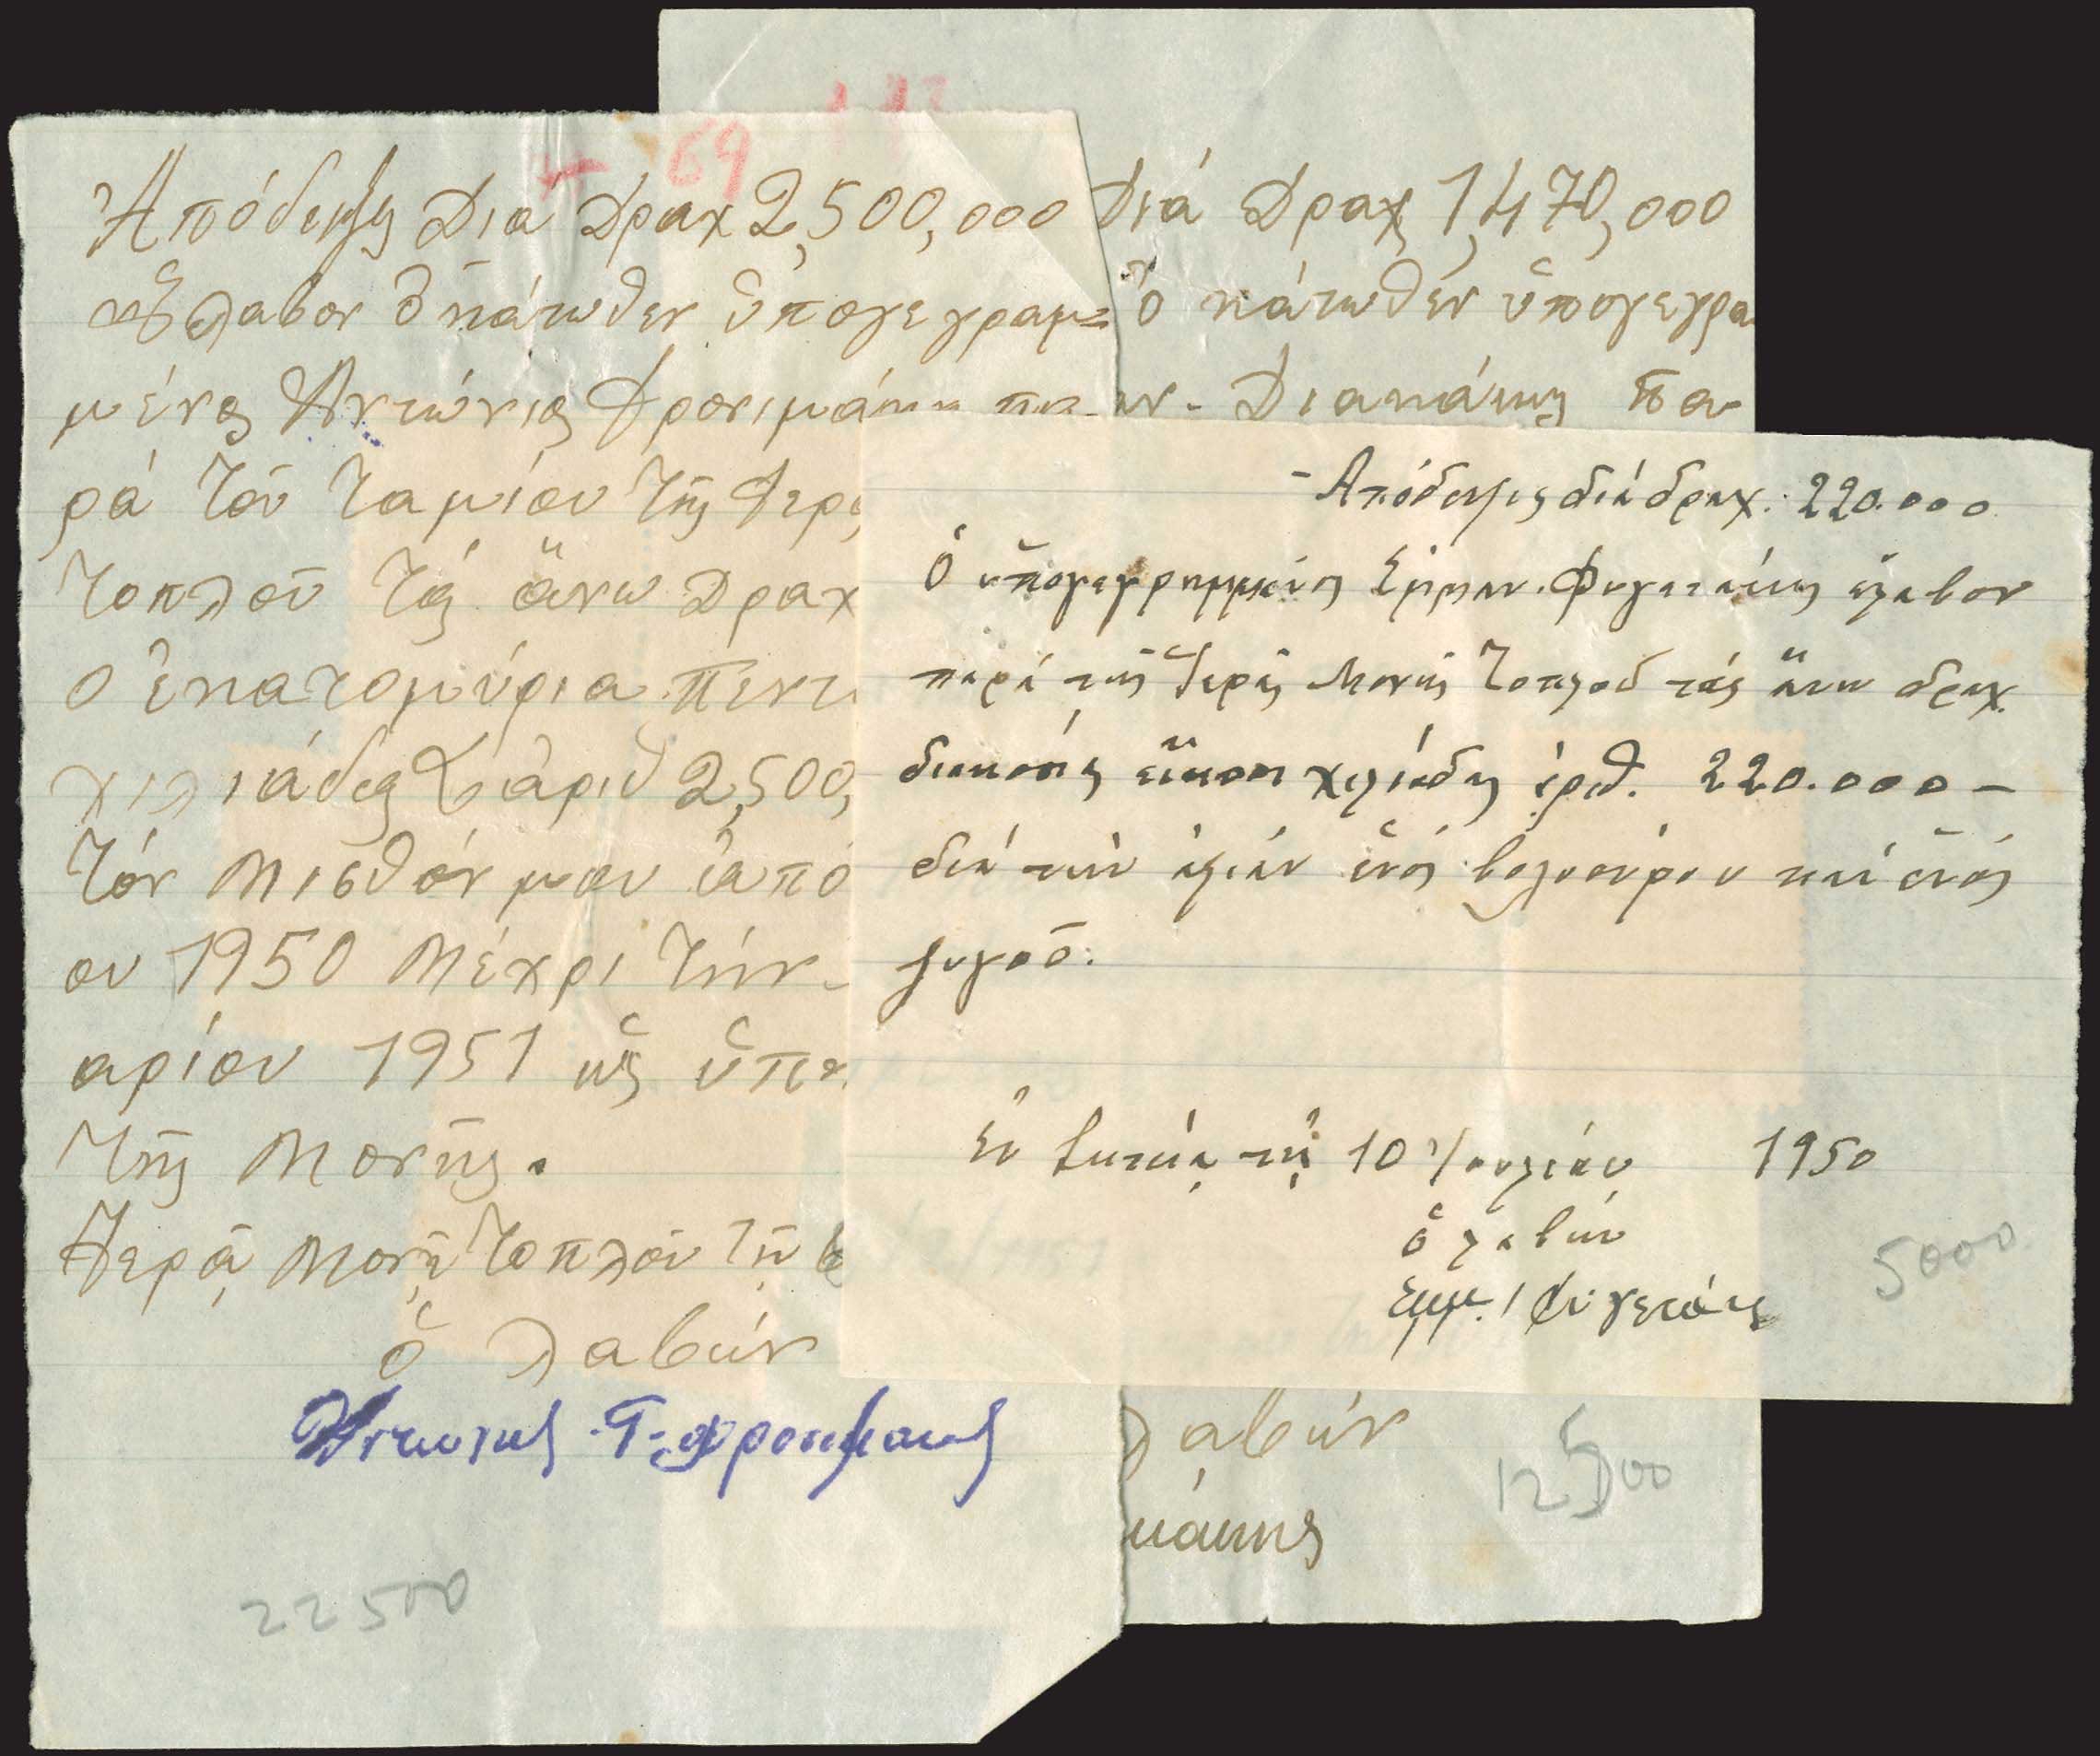 69
Ἀπόδειξις Διά Δραχ 2,500,000
Ἔλαβον ὁ κάτωθεν ὑπογεγραμ=
μένος Ἀντώνιος Φρονιμάκης πα-
ρά τοῦ ταμίου τῆς Ἱερᾶς
Τοπλοῦ τάς ἄνω Δραχ
ο ἑκατομύρια πεντα
χιλιάδες ἀριθ 2,500,
τόν Μισθόν μου ἀπό
ου 1950 Μέχρι τήν-
αρίου 1951 ὑπη
τῆς Μονῆς.
Ἱερᾷ Μονῇ Τοπλοῦ τῇ
ὁ λαβών
Ἀντωνιος Γ. Φρονιμακις
22500
Διά Δραχ 1,470,000
ὁ κάτωθεν ὑπογεγρα
Διακάκης πα
λαβών
κάκης
12500
-Ἀπόδειξις διά δραχ. 220.000
Ὁ ὑπογεγραμμένος Ἐμμαν. Φυγετάκης ἔλαβον
παρά τῆς Ἱερᾶς Μονῆς Τοπλοῦ τάς ἄνω δραχ.
διακοσίας εἴκοσι χιλιάδες ἀριθ. 220.000-
διά τήν ἀξίαν ἑνός βολοσύρου καί ἑνός
ζυγοῦ.
Ἐν Σητείᾳ τῇ 10 Ἰουλίου 1950
ὁ λαβών
Εμμ. Φυγετάκης
5000